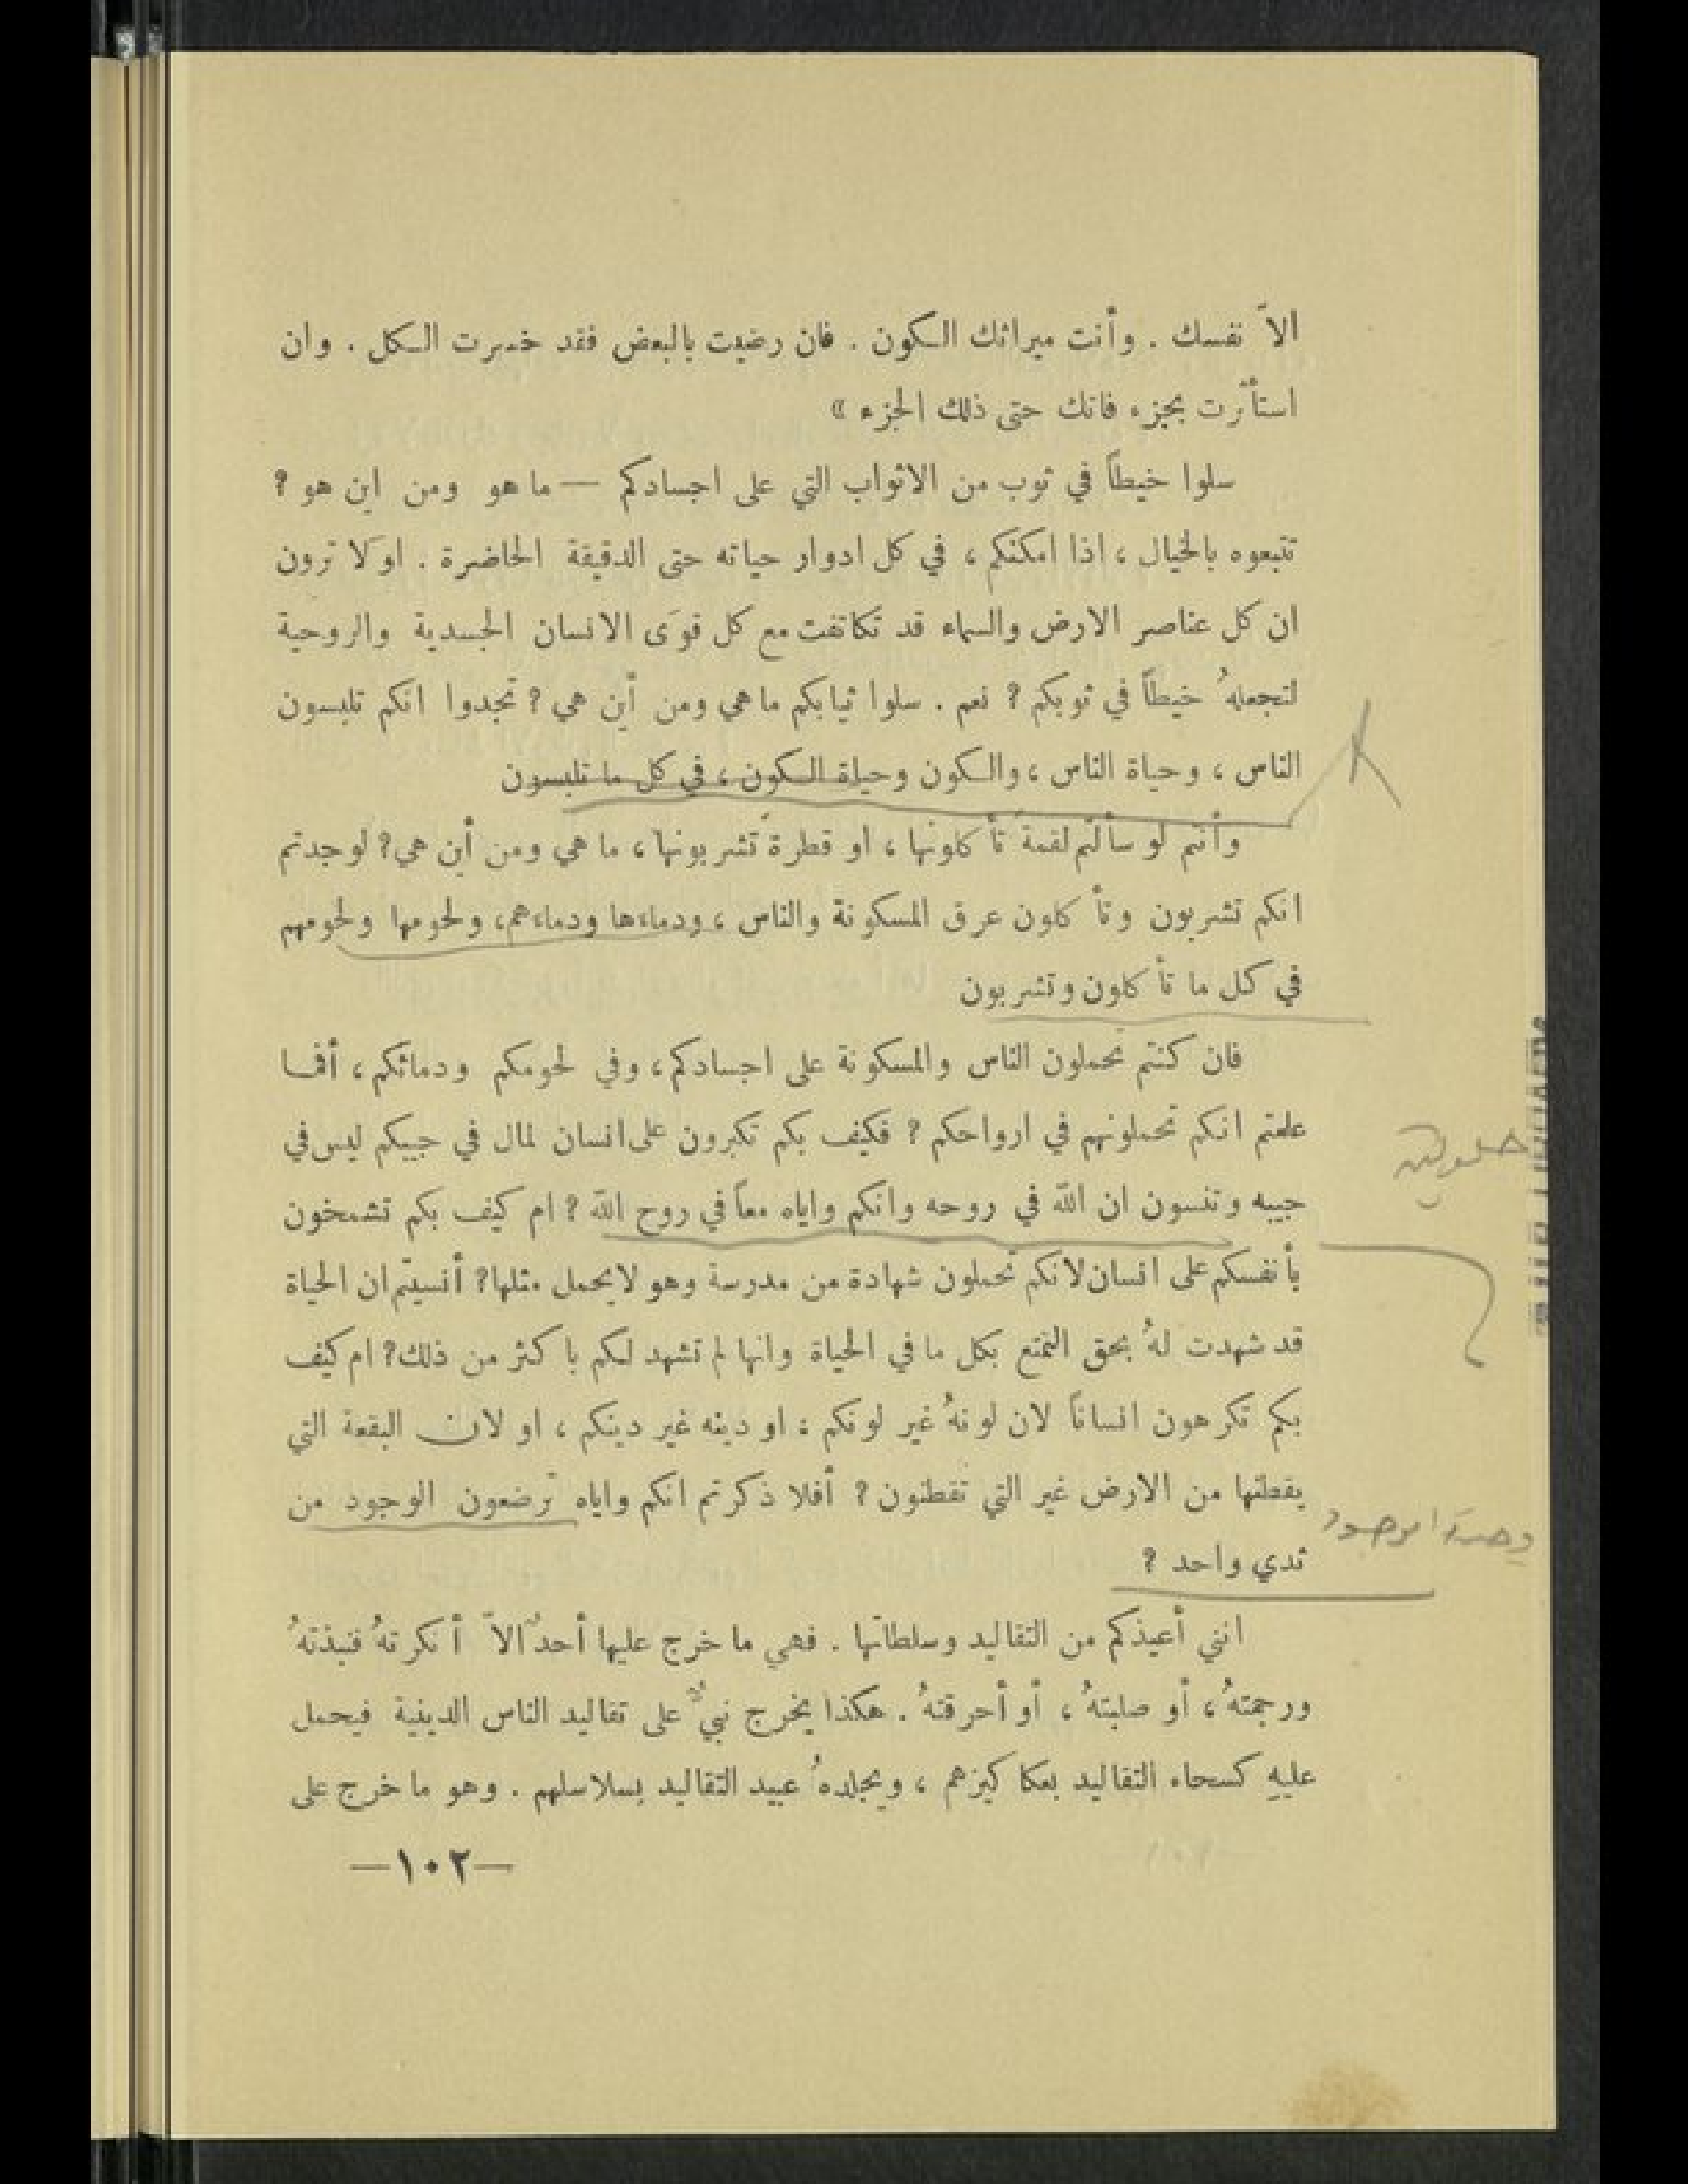 الاّ نفسك . وأنت ميراثك الكون . فان رضيت بالبعض فقد خسرت الكل . وان
استأثرت بجزء فاتك حتى ذلك الجزء »
سلوا خيطاً في ثوب من الاثواب التي على اجسادكم — ما هو ومن اين هو ؟
تتبعوه بالخيال ، اذا امكنكم ، في كل ادوار حياته حتى الدقيقة الحاضرة . اوَلا ترون
ان كل عناصر الارض والسماء قد تكاتفت مع كل قوَى الانسان الجسدية والروحية
لتجعلهُ خيطاً في ثوبكم ؟ نعم . سلوا ثيابكم ما هي ومن أين هي ؟ تجدوا انكم تلبسون
الناس ، وحياة الناس ، والكون وحياة الكون ، في كل ما تلبسون
وأنتم لو سألتم لقمةً تأكلونها ، او قطرةً تشربونها ، ما هي ومن أين هي؟ لوجدتم
انكم تشربون وتأكلون عرق المسكونة والناس ، ودماءها ودماءهم ، ولحومها ولحومهم
في كل ما تأكلون وتشربون
فان كنتم تحملون الناس والمسكونة على اجسادكم ، وفي لحومكم ودمائكم ، أفما
علمتم انكم تحملونهم في ارواحكم ؟ فكيف بكم تكبرون على انسان لمال في جيبكم ليس في
جيبه وتنسون ان الله في روحه وانكم واياه معاً في روح الله ؟ ام كيف بكم تشمخون
بأنفسكم على انسان لانكم تحملون شهادة من مدرسة وهو لا يحمل مثلها ؟ أنسيتم ان الحياة
قد شهدت لهُ بحق التمتع بكل ما في الحياة وانها لم تشهد لكم باكثر من ذلك؟ ام كيف
بكم تكرهون انساناً لان لونهُ غير لونكم ، او دينه غير دينكم ، او لان البقعة التي
يقطنها من الارض غير التي تقطنون ؟ أفلا ذكرتم انكم واياه ترضعون الوجود من
ثدي واحد ؟
انني أعيذكم من التقاليد وسلطانها . فهي ما خرج عليها أحدٌ الاّ أنكرتهُ فنبذتهُ
ورجمتهُ ، أو صلبتهُ ، أو أحرقتهُ . هكذا يخرج نبيٌّ على تقاليد الناس الدينية فيحمل
عليهِ كسحاء التقاليد بعكاكيزهم ، ويجلدهُ عبيد التقاليد بسلاسلهم . وهو ما خرج على
—١٠٢—
حلولية
وحدة الوجود